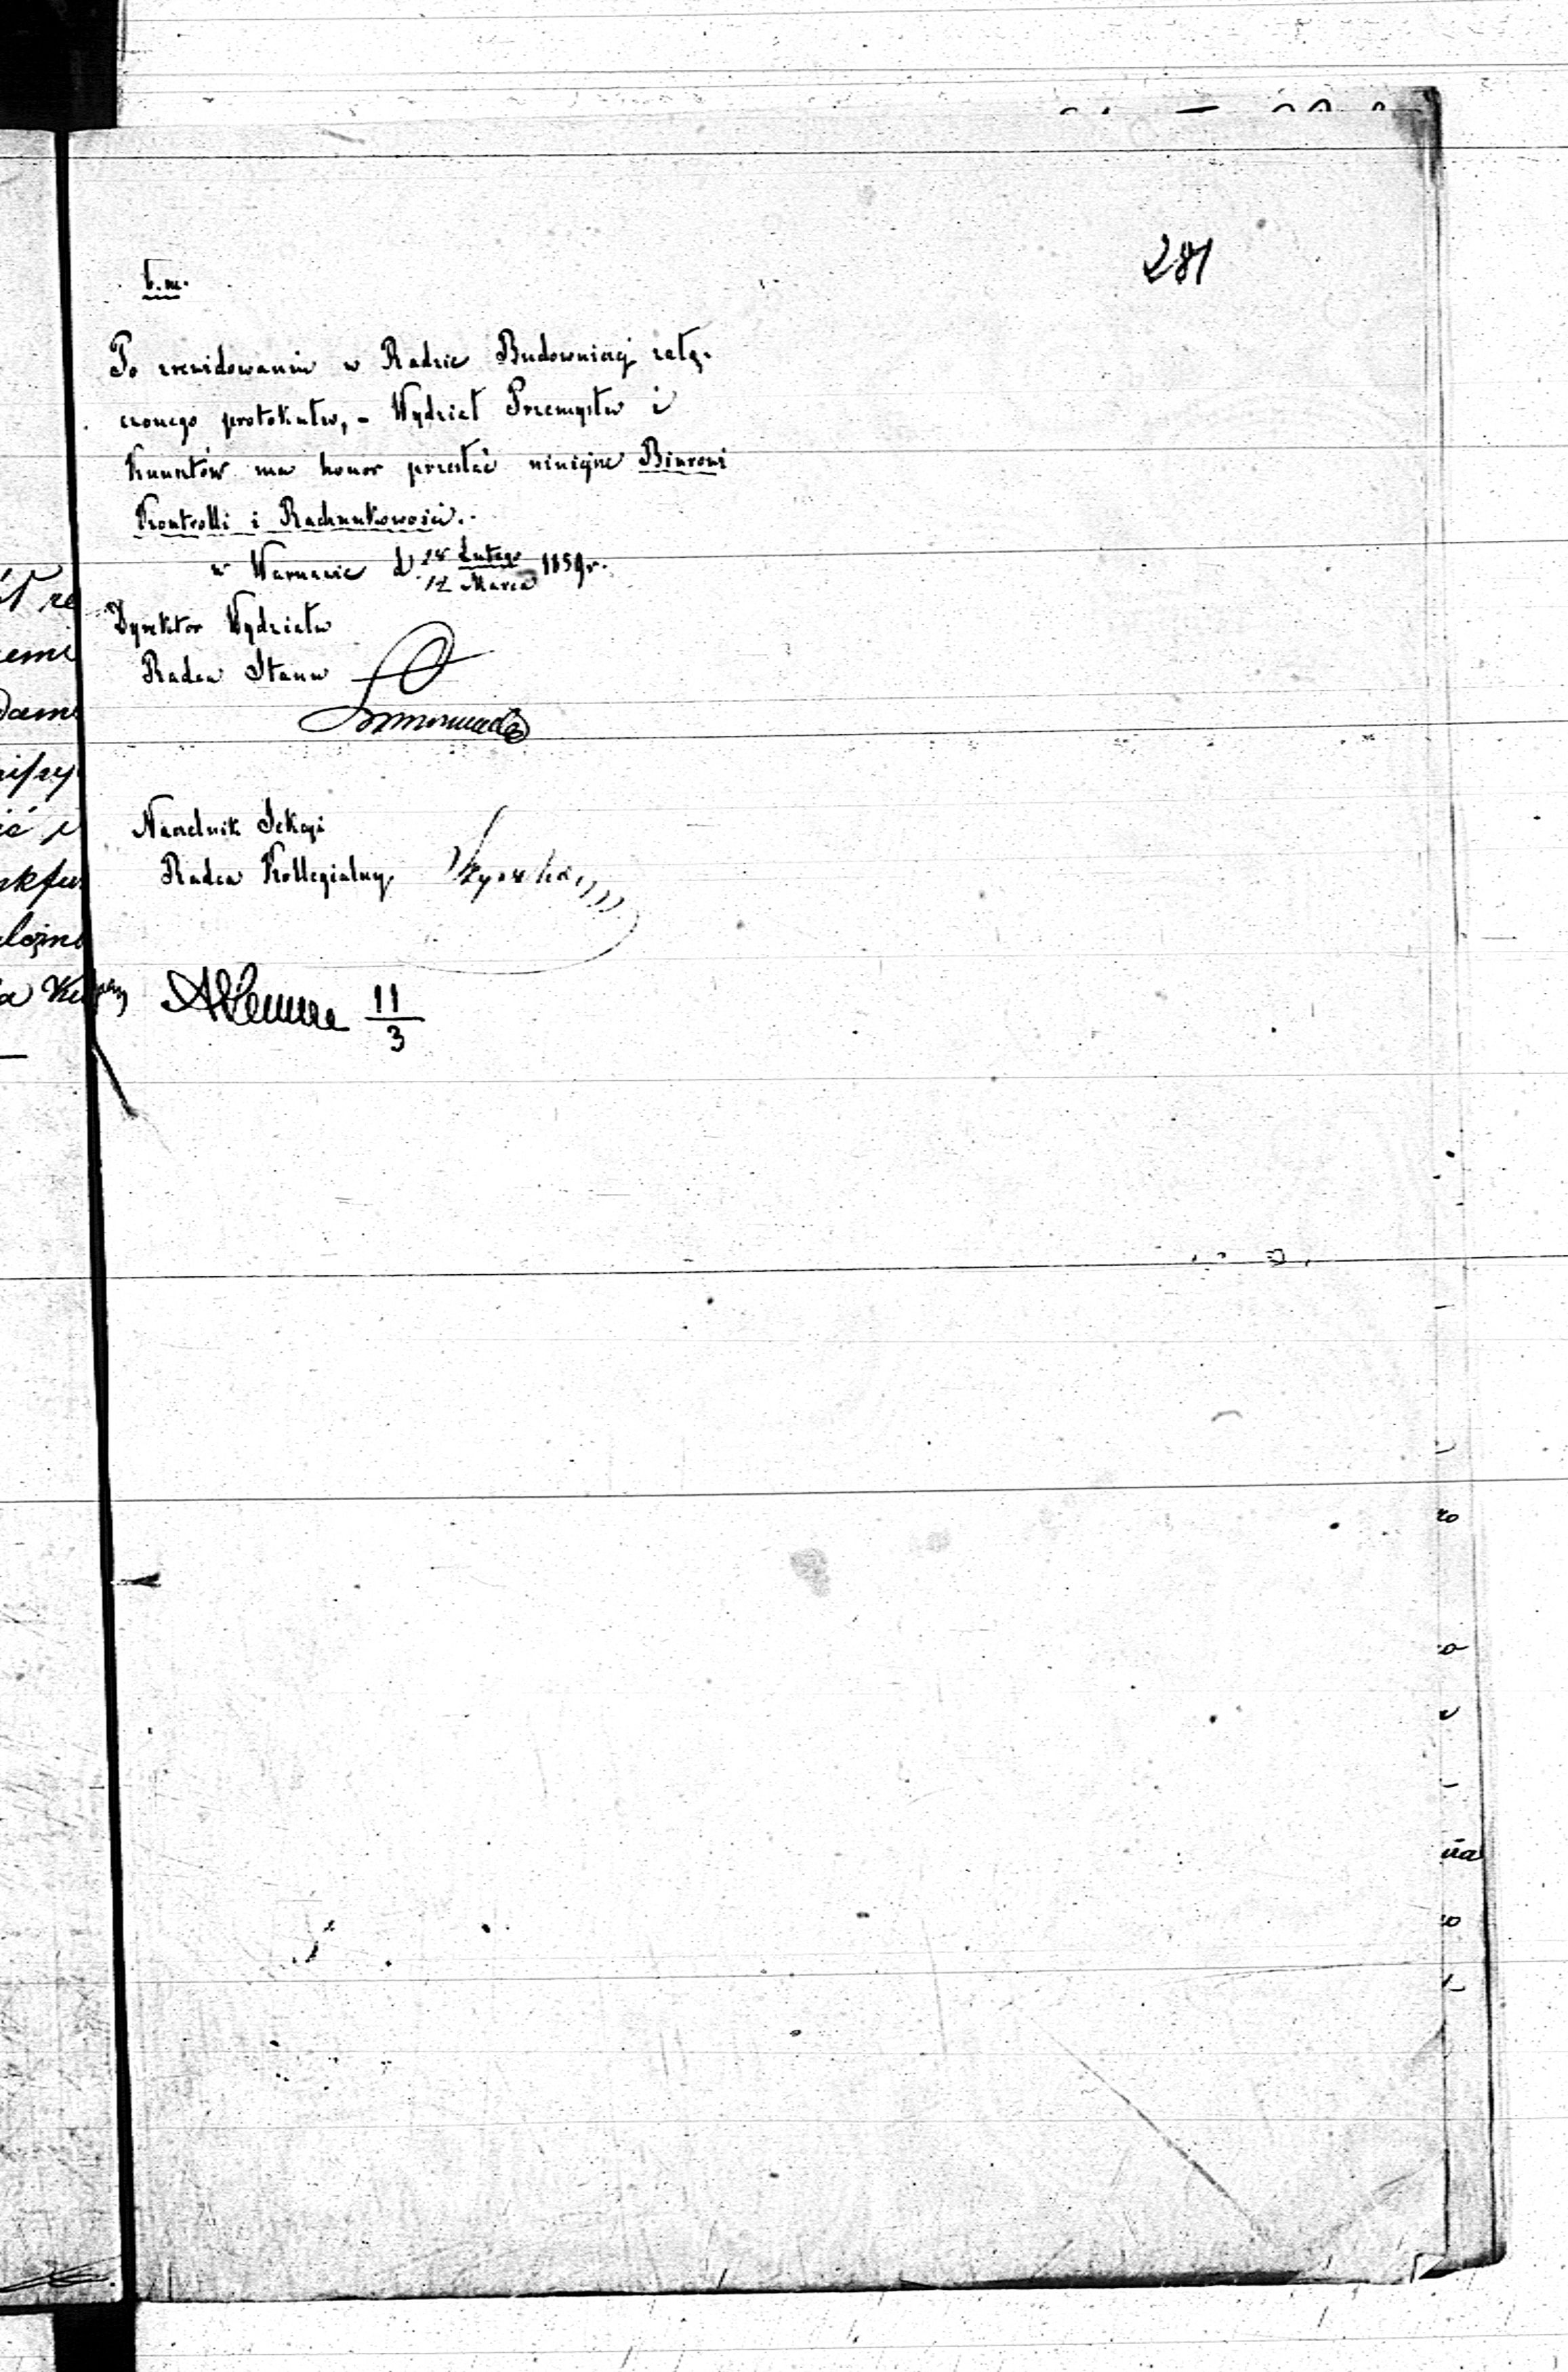 281
b. m.
Po zrewidowaniu w Radzie Budowniczej załą-
czonego protokułu, - Wydział Przemysłu i
Kunsztów ma honor przesłać niniejsze Biurowi
Kontrolli i Rachunkowości.-
w Warszawie d. 28 Lutego / 12 Marca 1859 r.
Dyrektor Wydziału
Radca Stanu
Naczelnik Sekcji
Radca Kollegialny
11/3